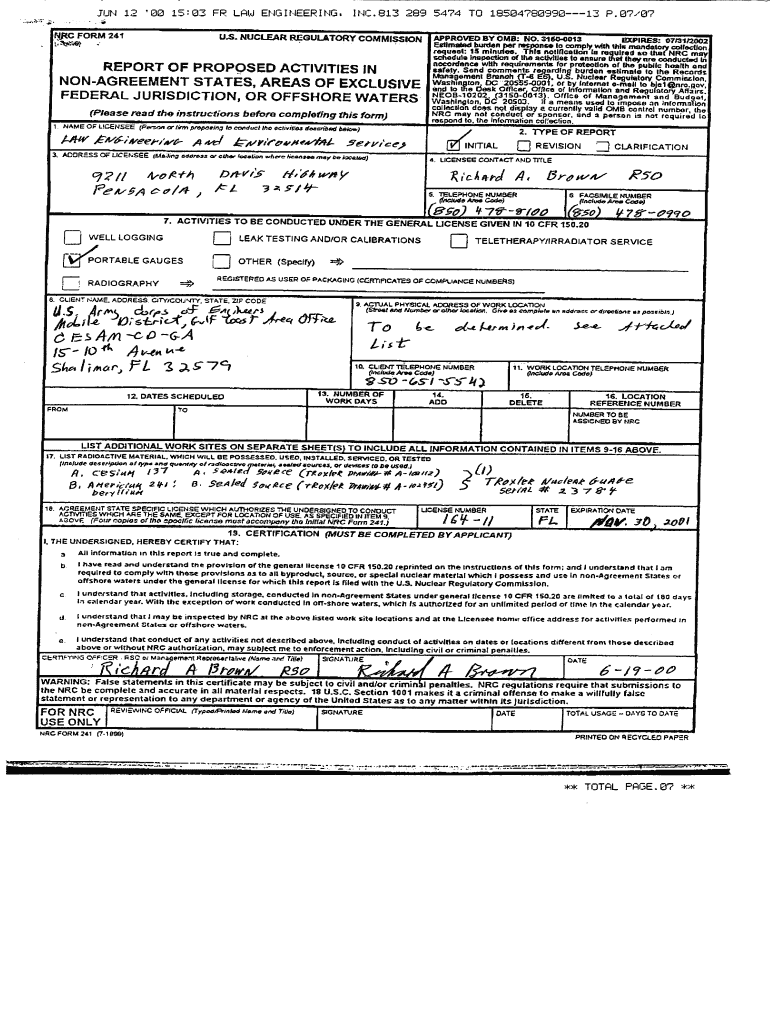 JUN 12 '00 15:03 FR LAW ENGINEERING. INC.813 289 5474 TO 18504780990---13 P.07/07
NRC FORM 241
U.S. NUCLEAR REGULATORY COMMISSION
REPORT OF PROPOSED ACTIVITIES IN
NON-AGREEMENT STATES, AREAS OF EXCLUSIVE
FEDERAL JURISDICTION, OR OFFSHORE WATERS
(Please read the instructions before completing this form)
APPROVED BY OMB: NO. 3150-0013 EXPIRES: 07/31/2002
Estimated burden per response to comply with this mandatory collection
request: 15 minutes. This notification is required so that NRC may
schedule inspection of the activities to ensure that they are conducted in
accordance with requirements for protection of the public health and
safety. Send comments regarding burden estimate to the Records
Management Branch (T-6 E6), U.S. Nuclear Regulatory Commission,
Washington, DC 20555-0001, or by internet e-mail to bjs1@nrc.gov,
and to the Desk Officer, Office of Information and Regulatory Affairs,
NEOB-10202, (3150-0013), Office of Management and Budget,
Washington, DC 20503. If a means used to impose an information
collection does not display a currently valid OMB control number, the
NRC may not conduct or sponsor, and a person is not required to
respond to, the information collection.
1. NAME OF LICENSEE (Person or firm proposing to conduct the activities described below)
LAW ENGINEERING And Environmental Services
2. TYPE OF REPORT
INITIAL REVISION CLARIFICATION
3. ADDRESS OF LICENSEE (Mailing address or other location where licensee may be located)
9211 North DAVIS Highway
PENSACOLA, FL 32514
4. LICENSEE CONTACT AND TITLE
Richard A. Brown RSO
5. TELEPHONE NUMBER (Include Area Code)
(850) 478-8100
6 FACSIMILE NUMBER (Include Area Code)
(850) 478-0990
7. ACTIVITIES TO BE CONDUCTED UNDER THE GENERAL LICENSE GIVEN IN 10 CFR 150.20
WELL LOGGING LEAK TESTING AND/OR CALIBRATIONS TELETHERAPY/IRRADIATOR SERVICE
PORTABLE GAUGES OTHER (Specify) ⇒
RADIOGRAPHY ⇒ REGISTERED AS USER OF PACKAGING (CERTIFICATES OF COMPLIANCE NUMBERS)
8. CLIENT NAME, ADDRESS, CITY/COUNTY, STATE, ZIP CODE
U.S. Army Corps of Engineers
Mobile District, Gulf Coast Area Office
CESAM-CD-GA
15-10th Avenue
Shalimar, FL 32579
9. ACTUAL PHYSICAL ADDRESS OF WORK LOCATION
(Street and Number or other location. Give as complete an address or directions as possible.)
To be determined. see Attached
List
10. CLIENT TELEPHONE NUMBER (Include Area Code)
850-651-5542
11. WORK LOCATION TELEPHONE NUMBER (Include Area Code)
12. DATES SCHEDULED
FROM TO
13. NUMBER OF WORK DAYS
14. ADD
15. DELETE
16. LOCATION REFERENCE NUMBER
NUMBER TO BE ASSIGNED BY NRC
LIST ADDITIONAL WORK SITES ON SEPARATE SHEET(S) TO INCLUDE ALL INFORMATION CONTAINED IN ITEMS 9-16 ABOVE.
17. LIST RADIOACTIVE MATERIAL, WHICH WILL BE POSSESSED, USED, INSTALLED, SERVICED, OR TESTED
(Include description of type and quantity of radioactive material, sealed sources, or devices to be used.)
A. Cesium 137 A. Sealed Source (Troxler Drawing # A-102112) (1)
B. Americium 241: B. Sealed Source (Troxler Drawing # A-102451)
beryllium
Troxler Nuclear Guage
Serial # 23784
18. AGREEMENT STATE SPECIFIC LICENSE WHICH AUTHORIZES THE UNDERSIGNED TO CONDUCT
ACTIVITIES WHICH ARE THE SAME, EXCEPT FOR LOCATION OF USE, AS SPECIFIED IN ITEM 9,
ABOVE. (Four copies of the specific license must accompany the initial NRC Form 241.)
LICENSE NUMBER
164-11
STATE
FL
EXPIRATION DATE
Nov. 30, 2001
19. CERTIFICATION (MUST BE COMPLETED BY APPLICANT)
I, THE UNDERSIGNED, HEREBY CERTIFY THAT:
a All information in this report is true and complete.
b I have read and understand the provision of the general license 10 CFR 150.20 reprinted on the instructions of this form; and I understand that I am
required to comply with these provisions as to all byproduct, source, or special nuclear material which I possess and use in non-Agreement States or
offshore waters under the general license for which this report is filed with the U.S. Nuclear Regulatory Commission.
c I understand that activities, including storage, conducted in non-Agreement States under general license 10 CFR 150.20 are limited to a total of 180 days
in calendar year. With the exception of work conducted in off-shore waters, which is authorized for an unlimited period of time in the calendar year.
d. I understand that I may be inspected by NRC at the above listed work site locations and at the Licensee home office address for activities performed in
non-Agreement States or offshore waters.
e. I understand that conduct of any activities not described above, including conduct of activities on dates or locations different from those described
above or without NRC authorization, may subject me to enforcement action, including civil or criminal penalties.
CERTIFYING OFFICER - RSO or Management Representative (Name and Title)
Richard A Brown RSO
SIGNATURE
Richard A Brown
DATE
6-19-00
WARNING: False statements in this certificate may be subject to civil and/or criminal penalties. NRC regulations require that submissions to
the NRC be complete and accurate in all material respects. 18 U.S.C. Section 1001 makes it a criminal offense to make a willfully false
statement or representation to any department or agency of the United States as to any matter within its jurisdiction.
FOR NRC USE ONLY
REVIEWING OFFICIAL (Typed/Printed Name and Title)
SIGNATURE
DATE
TOTAL USAGE -- DAYS TO DATE
NRC FORM 241 (7-1999)
PRINTED ON RECYCLED PAPER
** TOTAL PAGE.07 **